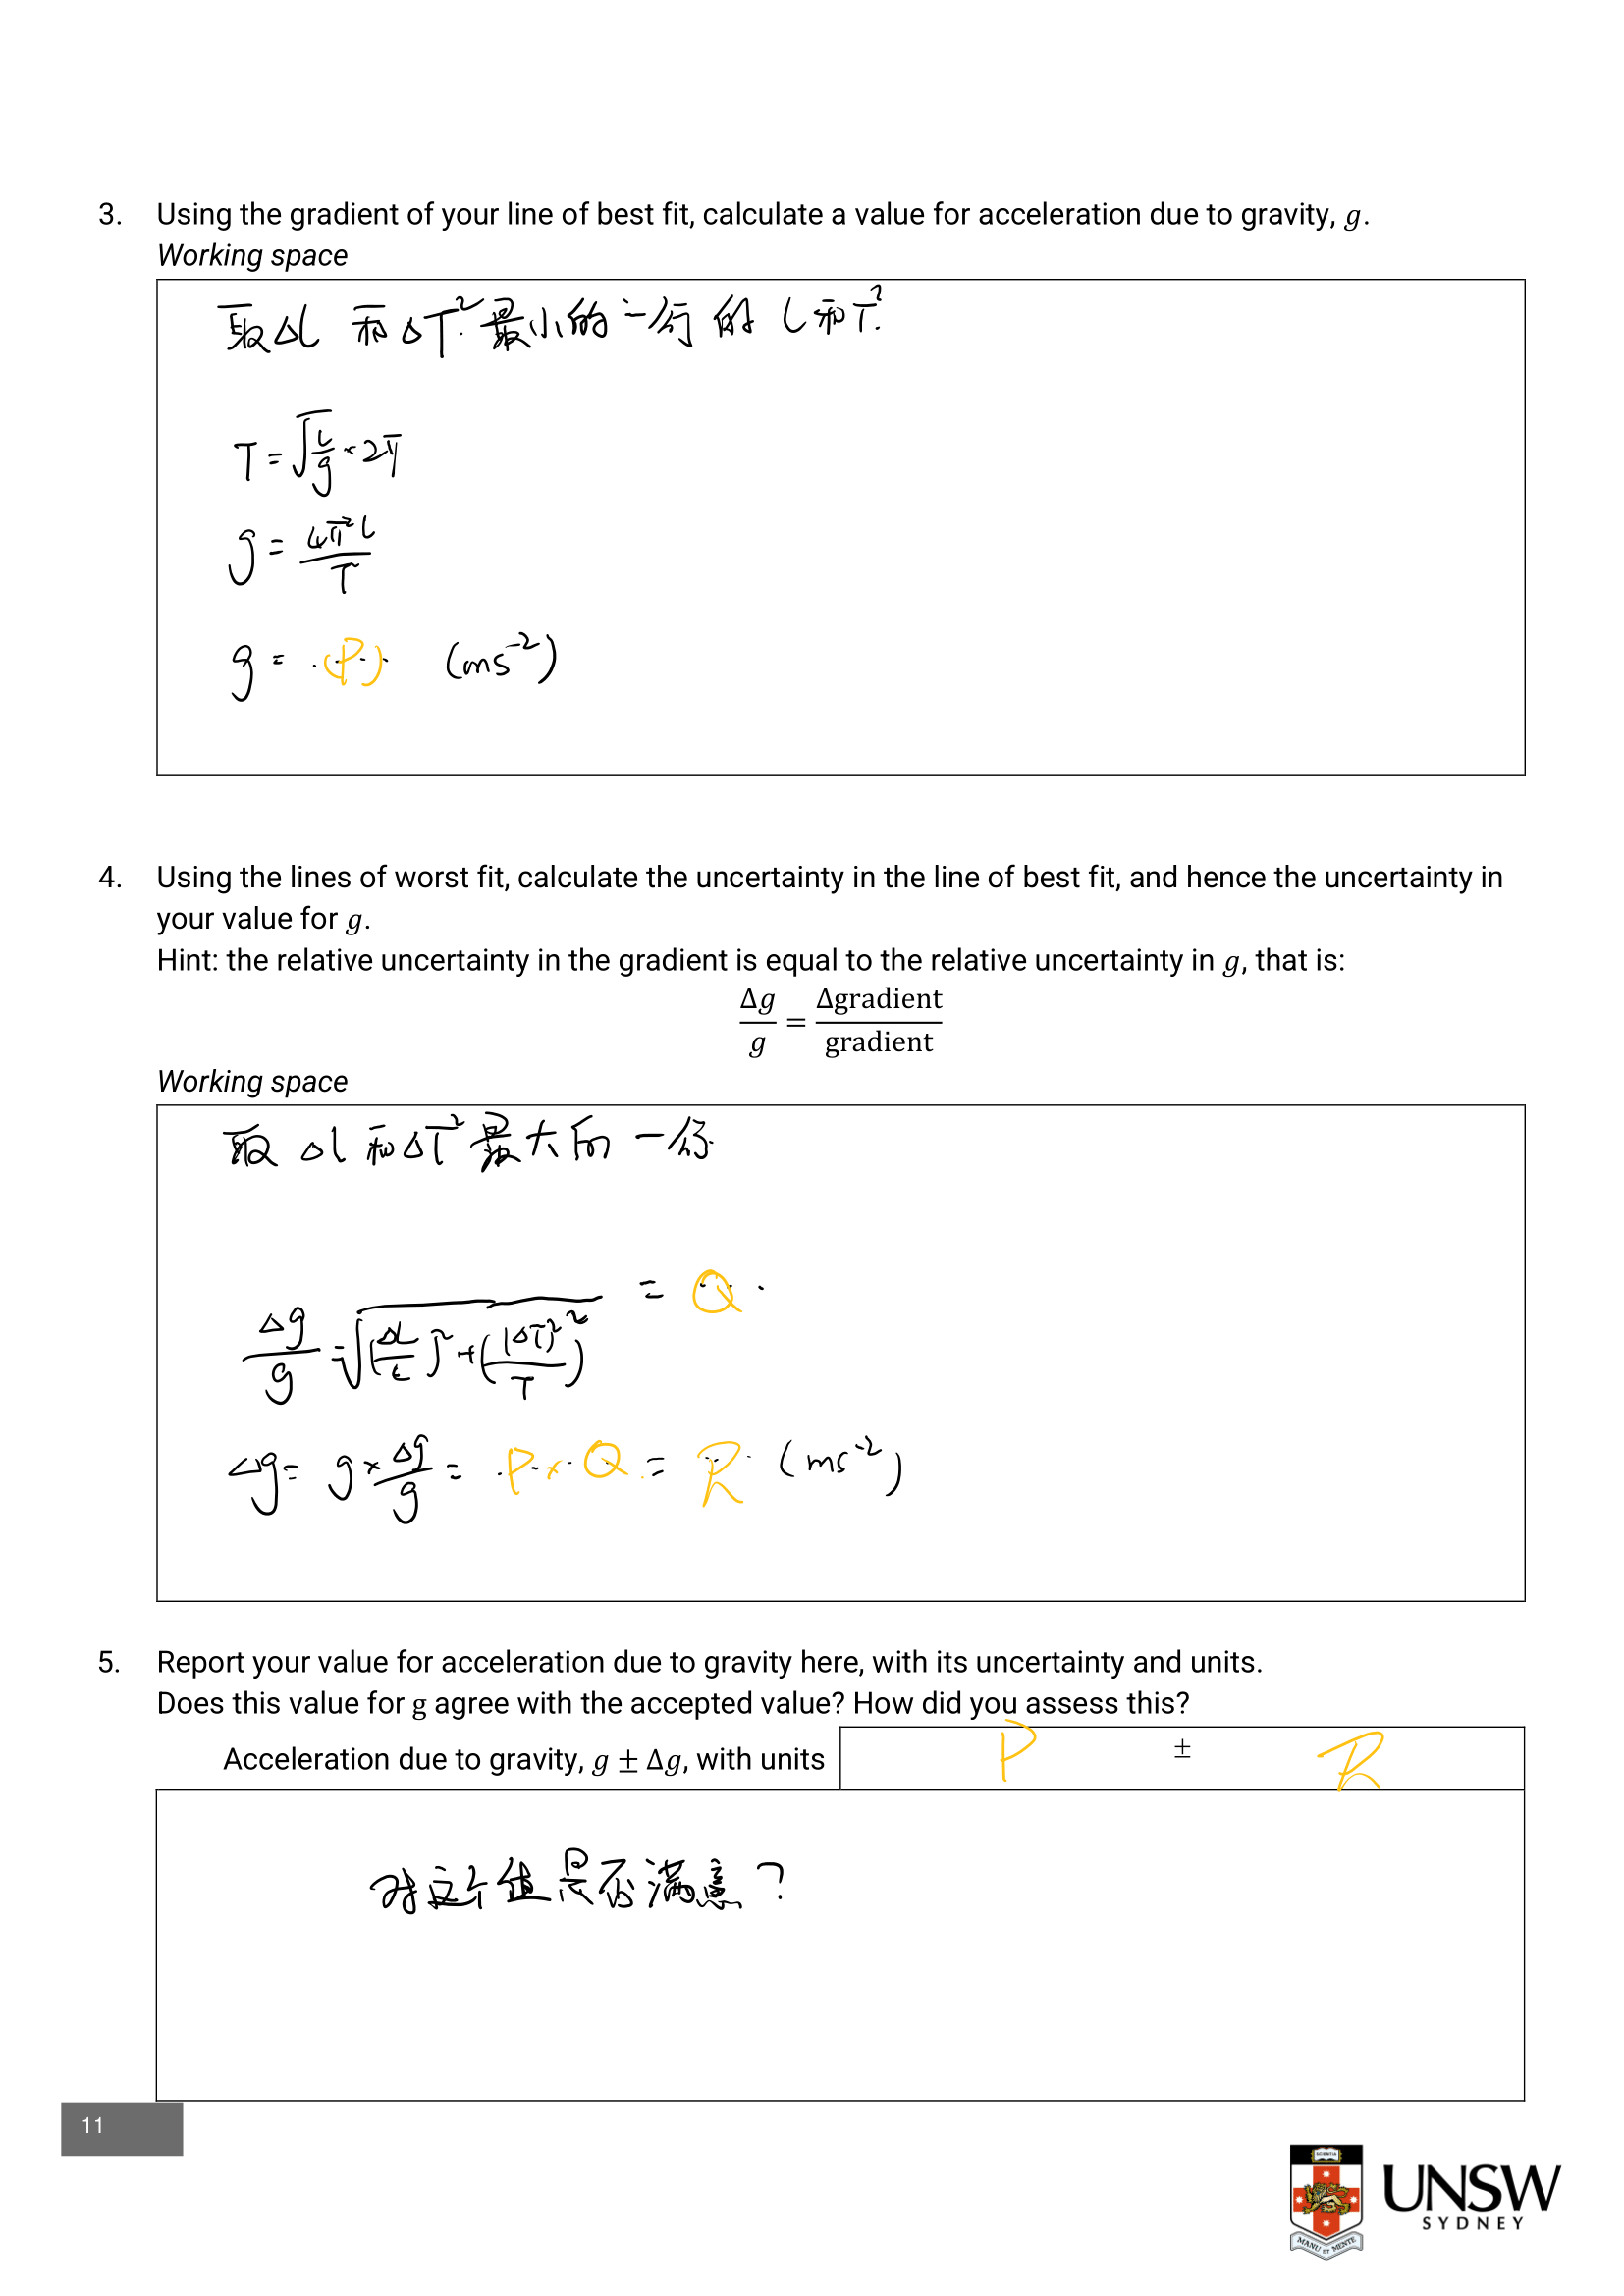 3. Using the gradient of your line of best fit, calculate a value for acceleration due to gravity, g.
Working space
取ΔL 和ΔT² 最小的一行 的 L和T²
T = √(L/g) × 2π
g = 4π²L / T
g = ..(P).. (ms⁻²)
4. Using the lines of worst fit, calculate the uncertainty in the line of best fit, and hence the uncertainty in
your value for g.
Hint: the relative uncertainty in the gradient is equal to the relative uncertainty in g, that is:
Δg/g = Δgradient/gradient
Working space
取 ΔL 和ΔT² 最大的 一行
Δg/g = √((ΔL/L)² + ((ΔT)²/T)²) = Q
Δg = g × Δg/g = P × Q = R (ms⁻²)
5. Report your value for acceleration due to gravity here, with its uncertainty and units.
Does this value for g agree with the accepted value? How did you assess this?
Acceleration due to gravity, g ± Δg, with units P ± R
对这个值是否满意?
11
SCIENTIA
MANU ET MENTE
UNSW
SYDNEY